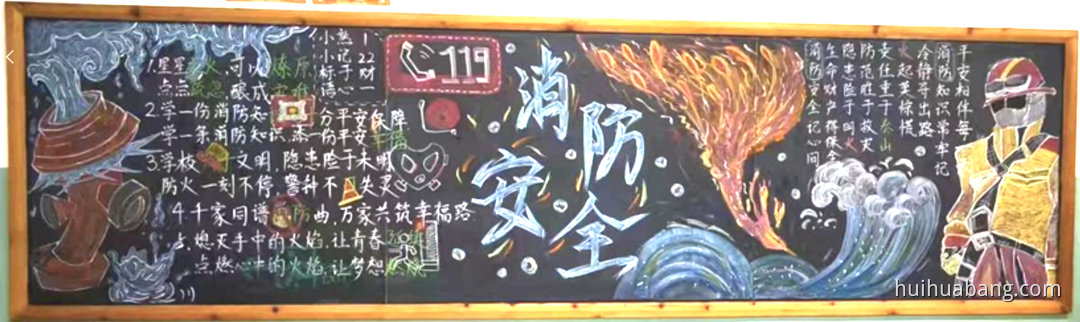 小小标语
熟记于心
1.星星之火,可以燎原
点点疏忽,酿成灾难
2.学一份消防知 一分平安保障
学一条消防知识 添一份平安幸福
3.学校 文明,隐患险于未明
防火一刻不停,警钟不 失灵
4.千家同谱消防曲 万家共筑幸福路
5.熄灭手中的火焰,让青春
点燃心中的火焰,让梦想
119
消防
安全
平安相伴每
消防知识常牢记
冷静寻出路
火起莫惊慌
责任重于泰山
防范胜于救灾
隐患险于明火
生命财产得保全
消防安全记心间
huihuabang.com